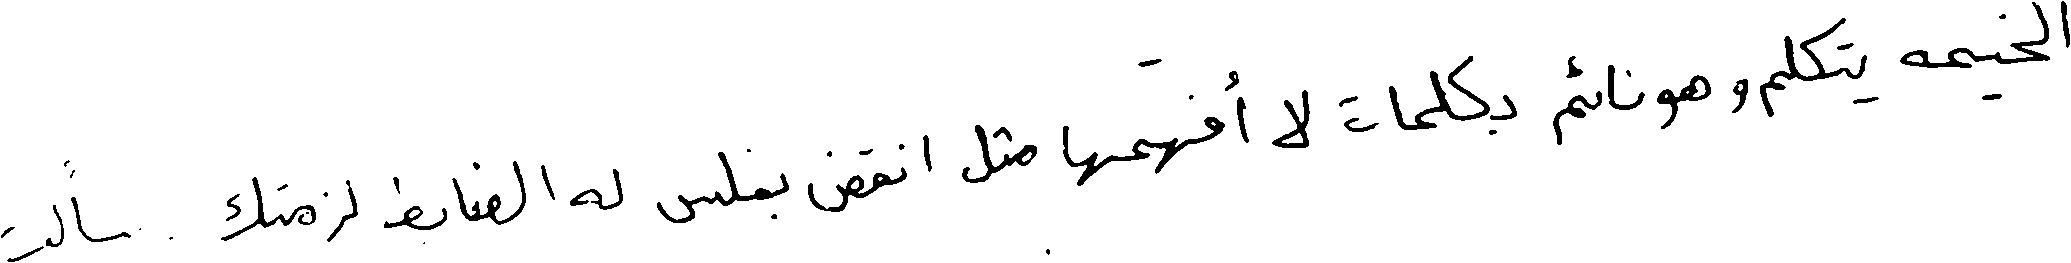 الخيمه يتكلم وهو نائم بكلمات لا أفهمها مثل انقض بفلس له الضابط لزمتك . سألت